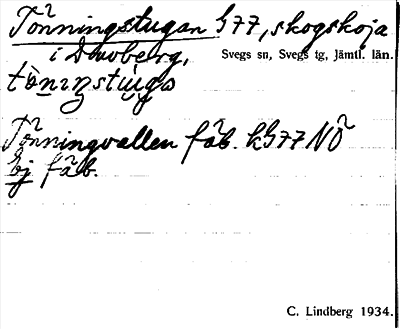 Tönningstugan h77, skogskoja
i Duvberg,
Svegs sn, Svegs tg, Jämtl. län.
Tönningvallen fäb. kh77NÖ
bj fäb.
C. Lindberg 1934.